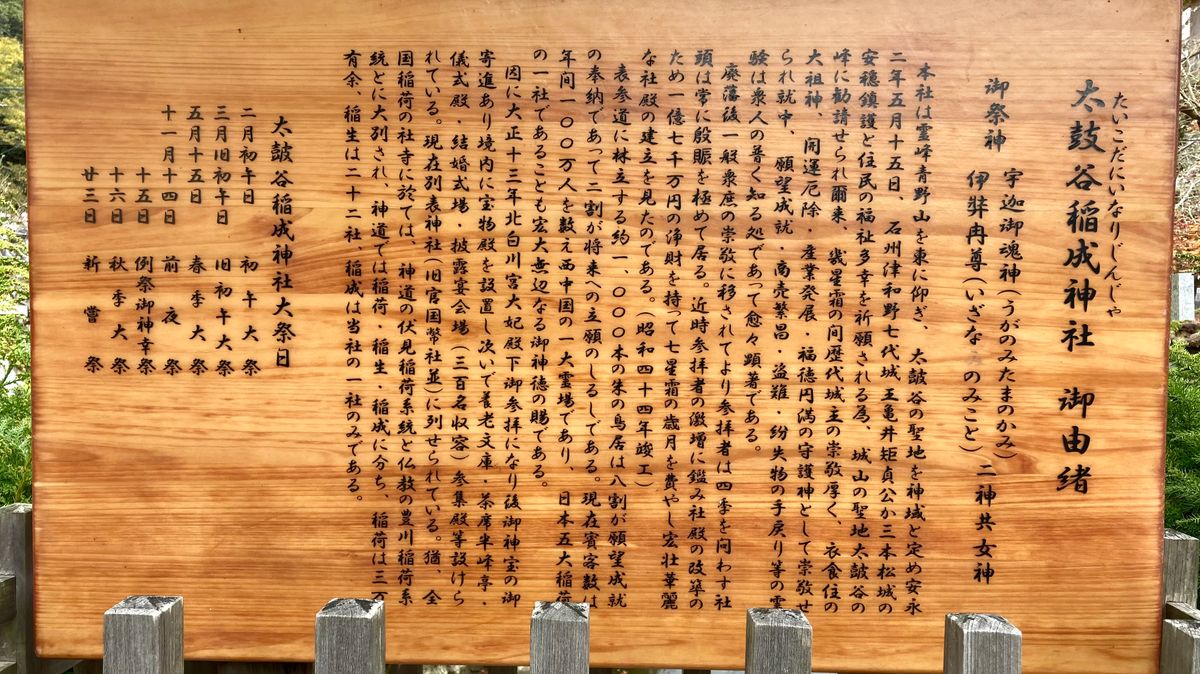 たいこだにいなりじんじゃ
太鼓谷稲成神社 御由緒
御祭神 宇迦御魂神(うがのみたまのかみ) 二神共女神
伊弉冉尊(いざな のみこと)
本社は霊峰青野山を東に仰ぎ、太皷谷の聖地を神域と定め安永
二年五月十五日、石州津和野七代城主亀井矩貞公か三本松城の
安穏鎮護と住民の福祉多幸を祈願される為、城山の聖地太皷谷の
峰に勧請せられ爾来、幾星霜の間歴代城主の崇敬厚く、衣食住の
大祖神、開運厄除・産業発展・福徳円満の守護神として崇敬せ
られ就中、願望成就・商売繁昌・盗難・紛失物の手戻り等の霊
験は衆人の普く知る処であって愈々顕著である。
廃藩後一般衆庶の崇敬に移されてより参拝者は四季を問わす社
頭は常に殷賑を極めて居る。近時参拝者の激増に鑑み社殿の改築の
ため一億七千万円の浄財を持って七星霜の歳月を費やし宏壮華麗
な社殿の建立を見たのである。(昭和四十四年竣工)
表参道に林立する約一、〇〇〇本の朱の鳥居は八割が願望成就
の奉納であって二割が将来への立願のしるしである。現在賓客数は
年間一〇〇万人を数え西中国の一大霊場であり、日本五大稲荷
の一社であることも宏大無辺なる御神徳の賜である。
因に大正十三年北白川宮大妃殿下御参拝になり後御神宝の御
寄進あり境内に宝物殿を設置し次いで養老文庫・茶席半峰亭・
儀式殿・結婚式場・披露宴会場(三百名収容)参集殿等設けら
れている。現在別表神社(旧官国幣社並)に列せられている。猶、全
国稲荷の社寺に於ては、神道の伏見稲荷系統と仏教の豊川稲荷系
統とに大別され、神道では稲荷・稲生・稲成に分ち、稲荷は三万
有余、稲生は二十二社、稲成は当社の一社のみである。
太皷谷稲成神社大祭日
二月初午日 初午大祭
三月旧初午日 旧初午大祭
五月十五日 春季大祭
十一月十四日 前夜祭
十五日 例祭御神幸祭
十六日 秋季大祭
廿三日 新嘗祭